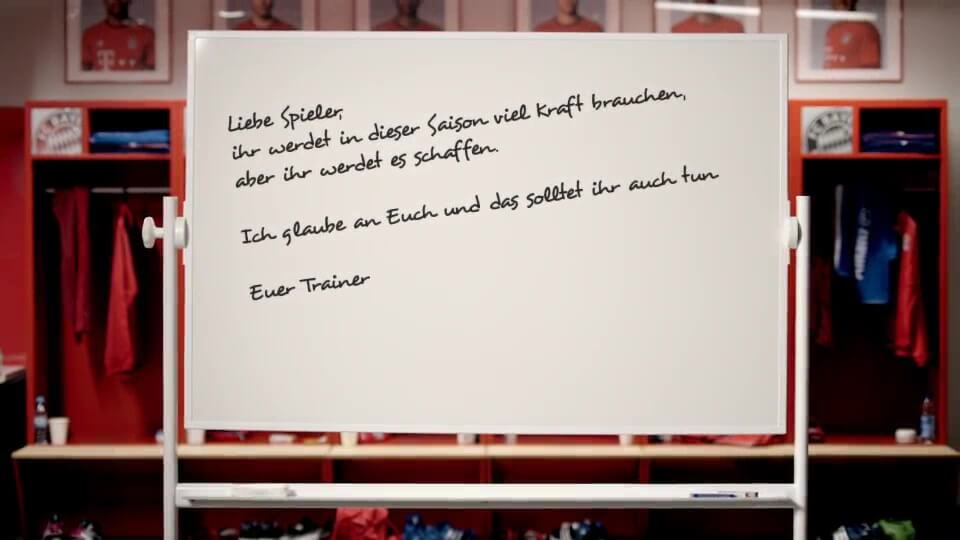 Liebe Spieler,
ihr werdet in dieser Saison viel Kraft brauchen,
aber ihr werdet es schaffen.
Ich glaube an Euch und das solltet ihr auch tun
Euer Trainer
FC BAY
FC BAY